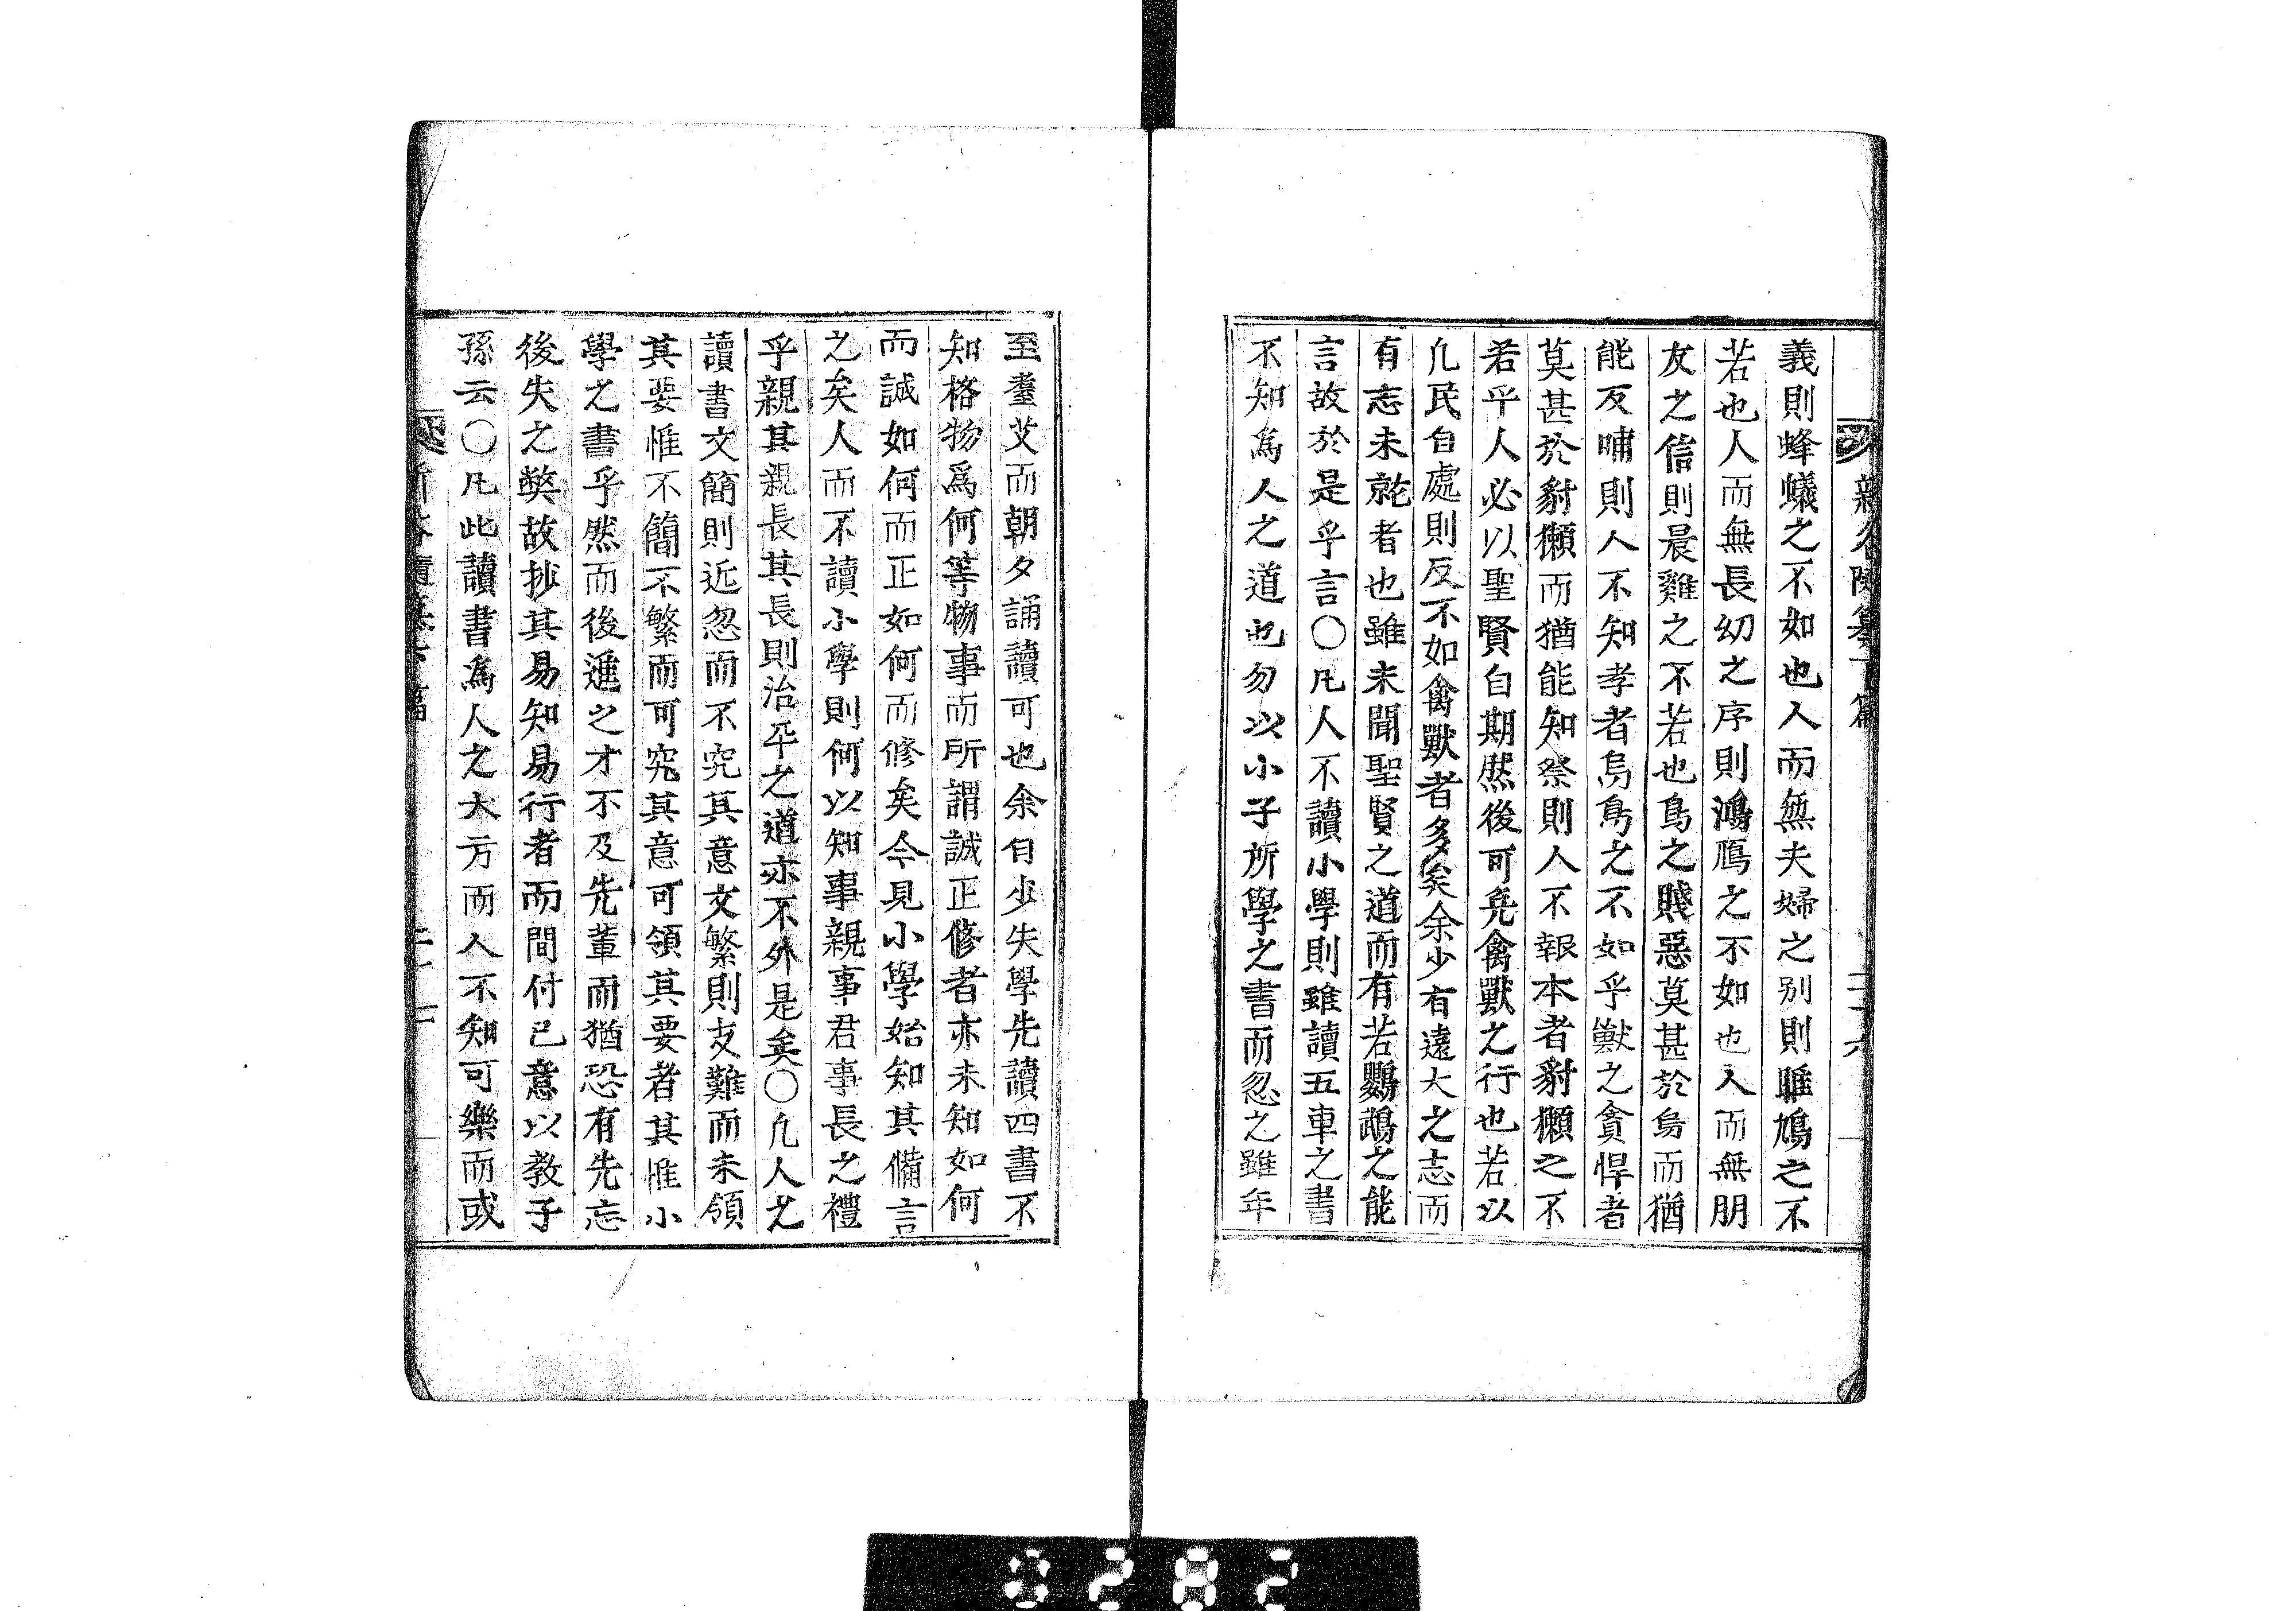 義則蜂蟻之不如也人而無夫婦之别則雎鳩之不
若也人而無長幼之序則鴻鴈之不如也人而無朋
友之信則晨雞之不若也鳥之賤惡莫甚於烏而猶
能反哺則人不知孝者烏鳥之不如乎獸之貪悍者
莫甚於豺獺而猶能知祭則人不報本者豺獺之不
若乎人必以聖賢自期然後可免禽獸之行也若以
凡民自處則反不如禽獸者多矣余少有遠大之志而
有志未就者也雖未聞聖賢之道而有若鸚鵡之能
言故於是乎言〇凡人不讀小學則雖讀五車之書
不知爲人之道也勿以小子所學之書而忽之雖年
至耋艾而朝夕誦讀可也余自少失學先讀四書不
知格物爲何等物事而所謂誠正修者亦未知如何
而誠如何而正如何而修矣今見小學始知其備言
之矣人而不讀小學則何以知事親事君事長之禮
乎親其親長其長則治平之道亦不外是矣〇凡人之
讀書文簡則近忽而不究其意文繁則支難而未領
其要惟不簡不繁而可究其意可領其要者其惟小
學之書乎然而後進之才不及先輩而猶恐有先忘
後失之弊故抄其易知易行者而間付己意以教子
孫云〇凡此讀書爲人之大方而人不知可樂而或